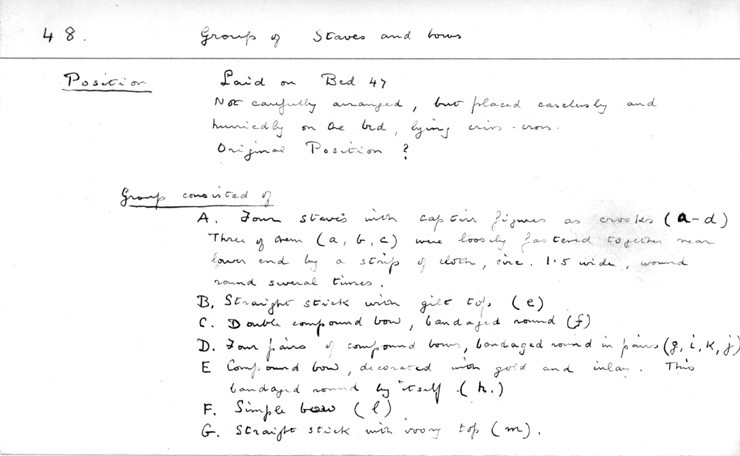 48. Group of Staves and bows
Position Laid on Bed 47
Not carefully arranged, but placed carelessly and
hurriedly on the bed, lying criss-cross.
Original Position ?
Group consisted of
A. Four staves with captive figures as crooks (a-d)
Three of them (a, b, c) were loosely fastened together near
lower end by a strip of cloth, circ. 1.5 wide, wound
round several times.
B. Straight stick with gilt top (e)
C. Double compound bow, bandaged round (f)
D. Four pairs of compound bows, bandaged round in pairs (g, i, k, j)
E Compound bow, decorated with gold and inlay. This
bandaged round by itself (h.)
F. Simple bow (l)
G. Straight stick with ivory top (m).